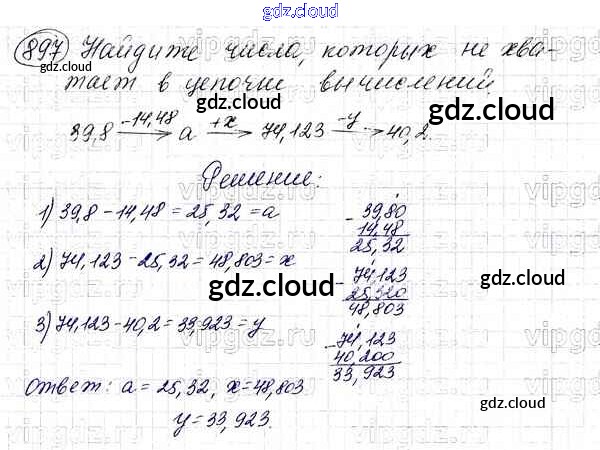 gdz.cloud
897 Найдите числа, которых не хва-
тает в цепочке вычислений
gdz.cloud
39,8 −14,48→ a +x→ 74,123 −y→ 40,2.
Решение:
1) 39,8 − 14,48 = 25,32 = a
− 39,80
14,48
25,32
2) 74,123 − 25,32 = 48,803 = x
− 74,123
25,320
48,803
gdz.cloud
gdz.cloud
3) 74,123 − 40,2 = 33,923 = y
− 74,123
40,200
33,923
gdz.cloud
Ответ: a = 25,32, x = 48,803
y = 33,923.
gdz.cloud
gdz.cloud